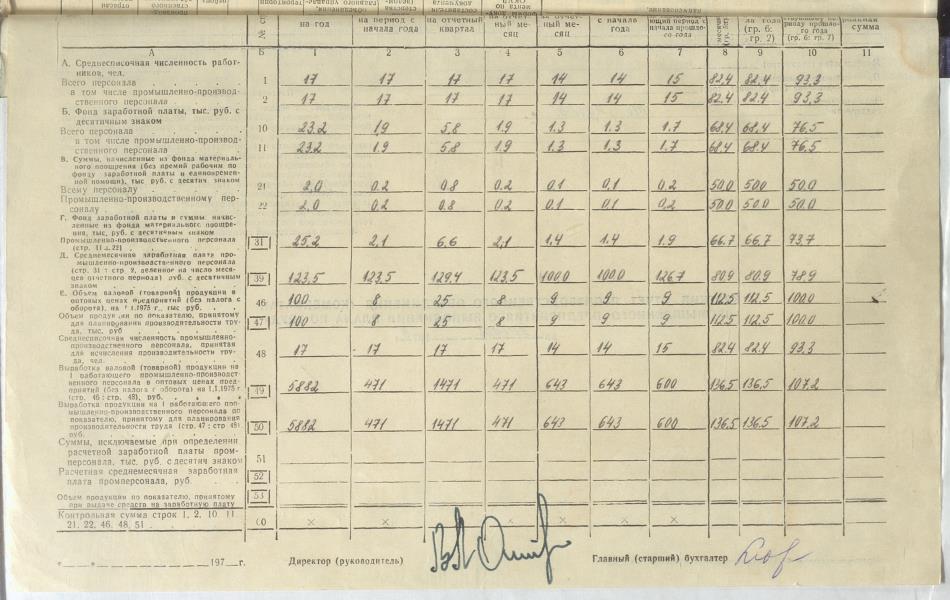 на год на период с начала года на отчетный квартал сяц сяц с начала года
А Б 1 2 3 4 5 6 7 8 9 10 11
А. Среднесписочная численность работ-
ников, чел.
Всего персонала 1 17 17 17 17 14 14 15 82.4 82.4 93.3
в том числе промышленно-производ-
ственного персонала 2 17 17 17 17 14 14 15 82.4 82.4 93.3
Б. Фонд заработной платы, тыс. руб. с
десятичным знаком
Всего персонала 10 23.2 1.9 5.8 1.9 1.3 1.3 1.7 68.4 68.4 76.5
в том числе промышленно-производ-
ственного персонала 11 23.2 1.9 5.8 1.9 1.3 1.3 1.7 68.4 68.4 76.5
В. Суммы, начисленные из фонда материаль-
ного поощрения (без премий рабочим по
фонду заработной платы и единовремен-
ной помощи), тыс руб. с десятич знаком
Всему персоналу 21 2,0 0.2 0.8 0.2 0.1 0.1 0.2 50.0 50.0 50.0
Промышленно-производственному пер-
соналу 22 2,0 0.2 0.8 0.2 0.1 0.1 0.2 50.0 50.0 50.0
Г. Фонд заработной платы и суммы, начис-
ленные из фонда материального поощре-
ния, тыс, руб. с десятичным знаком
Промышленно-производственного персонала
31 25.2 2,1 6.6 2,1 1.4 1.4 1.9 66.7 66.7 73.7
Д. Среднемесячная заработная плата про-
мышленно-производственного персонала
(стр. 31 : стр 2, деленное на число меся-
цев отчетного периода) руб. с десятичным
знаком 39 123,5 123,5 129.4 123.5 100.0 100.0 126.7 80.9 80.9 78.9
Е. Объем валовой (товарной) продукции в
оптовых ценах предприятий (без налога с
оборота), на 1.1.1975 г., тыс руб. 46 100 8 25 8 9 9 9 112.5 112.5 100.0
Объем продукции по показателю, принятому
для планирования производительности тру-
да, тыс. руб 47 100 8 25 8 9 9 9 112.5 112.5 100.0
Среднесписочная численность промышленно-
производственного персонала, принятая
для исчисления производительности тру-
да, чел. 48 17 17 17 17 14 14 15 82.4 82.4 93.3
Выработка валовой (товарной) продукции на
1 работающего промышленно-производст-
венного персонала в оптовых ценах пред-
приятий (без налога с оборота) на 1.1.1975 г.
(стр. 46 : стр. 48), руб. 49 5882 471 1471 471 643 643 600 136.5 136.5 107.2
Выработка продукции на 1 работающего про-
мышленно-производственного персонала по
показателю, принятому для планирования
производительности труда (стр. 47 : стр 48)
руб. 50 5882 471 1471 471 643 643 600 136.5 136.5 107.2
Суммы, исключаемые при определении
расчетной заработной платы пром-
персонала, тыс. руб. с десятич знаком 51
Расчетная среднемесячная заработная
плата промперсонала, руб. 52
Объем продукции по показателю, принятому
при выдаче средств на заработную плату 53
Контрольная сумма строк 1, 2, 10, 11
21, 22, 46, 48, 51 × × × × × × ×
197 г. Директор (руководитель) Главный (старший) бухгалтер